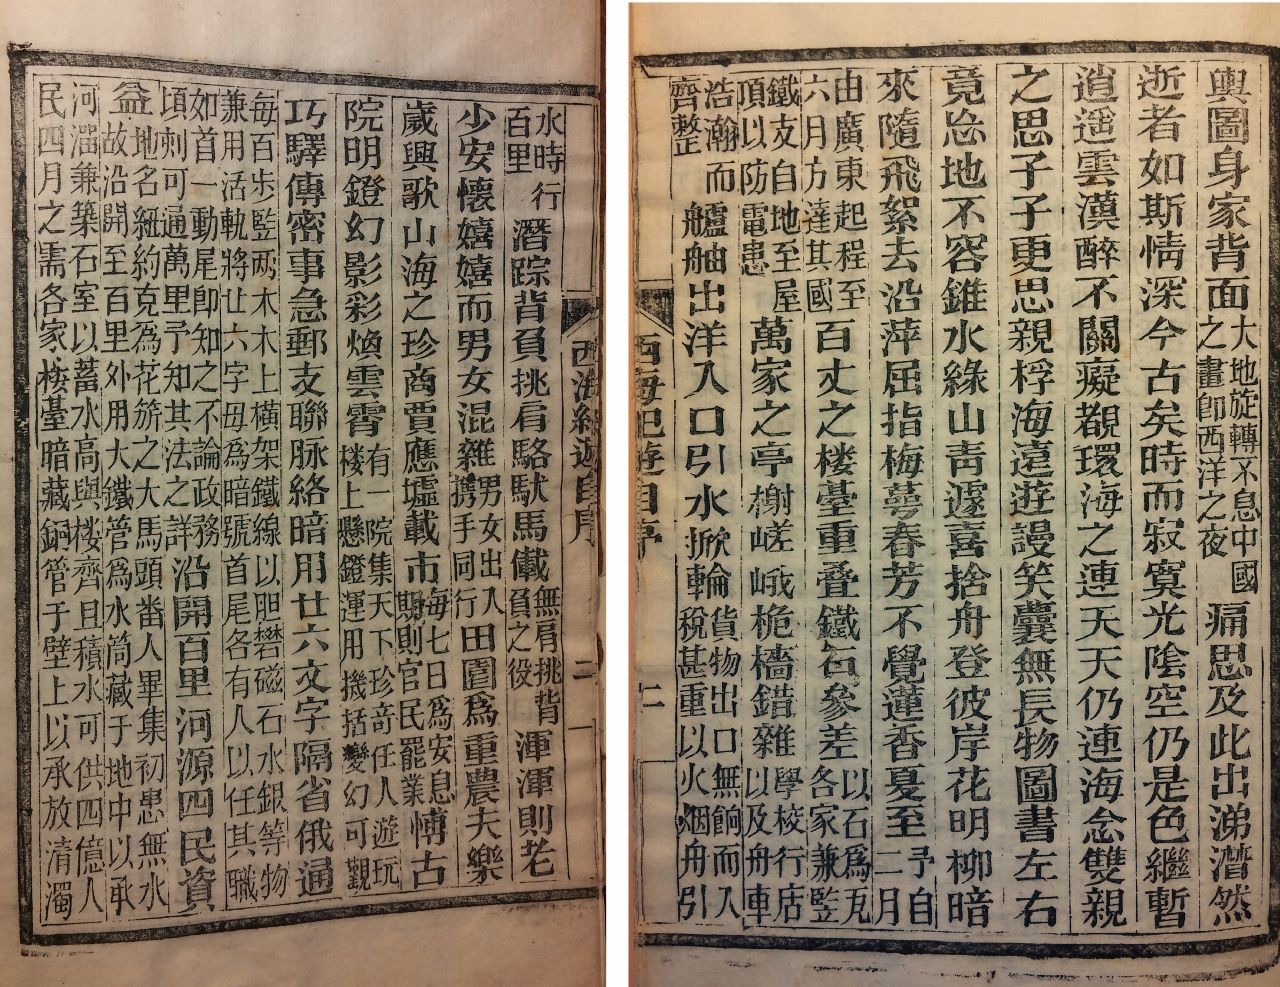 輿圖身家背面大地旋轉不息中國之晝卽西洋之夜痛思及此出涕潸然
逝者如斯情深今古矣時而寂寞光陰空仍是色繼暫
逍遙雲漢醉不關癡覩環海之連天天仍連海念雙親
之思子子更思親桴海遠遊謾笑囊無長物圖書左右
竟忘地不容錐水綠山靑遽喜捨舟登彼岸花明柳暗
來隨飛絮去沿萍屈指梅蕚春芳不覺蓮香夏至予自二月
由廣東起程至六月方達其國百丈之楼臺重叠鐵石參差以石爲瓦各家兼監
鐵支自地至屋頂以防電患萬家之亭榭嵯峨桅檣錯雜學校行店以及舟車
浩瀚而齊整艫舳出洋入口引水掀輪貨物出口無餉而入稅甚重以火烟舟引
西海紀遊自序 二
西海紀遊自序 二
水時行百里潛踪背負挑肩駱馱馬儎無肩挑背負之役渾渾則老
少安懷嬉嬉而男女混雜男女出入携手同行田園爲重農夫樂
歲興歌山海之珍商賈應墟載市每七日爲安息期則官民罷業博古
院明鐙幻影彩煥雲霄有一院集天下珍奇任人遊玩楼上懸鐙運用機括變幻可觀
巧驛傳密事急郵支聯脉絡暗用廿六文字隔省俄通
每百步監兩木木上橫架鐵線以胆礬磁石水銀等物兼用活軌將廿六字母爲暗號首尾各有人以任其職
如首一動尾卽知之不論政務頃刻可通萬里予知其法之詳沿開百里河源四民資
益地名紐約克爲花旂之大馬頭畨人畢集初患無水故沿開至百里外用大鐵管爲水筒藏于地中以承
河溜兼築石室以蓄水高與楼齊且積水可供四億人民四月之需各家楼臺暗藏銅管于壁上以承放清濁